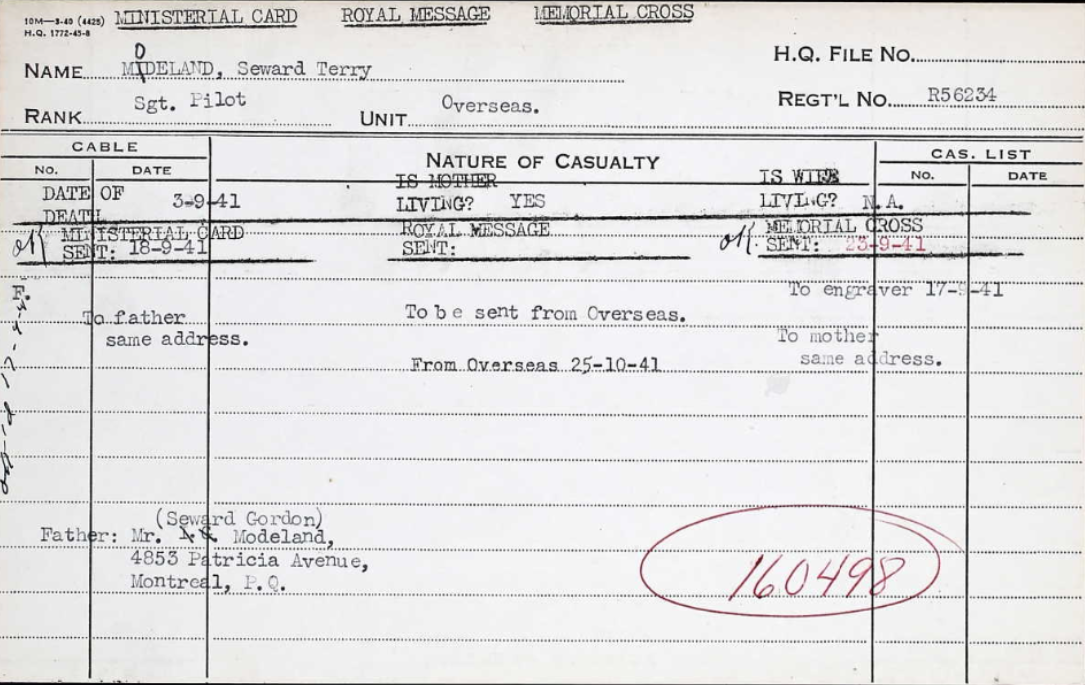 10M—3-40 (4425) MINISTERIAL CARD ROYAL MESSAGE MEMORIAL CROSS
H.Q. 1772-45-8
H.Q. FILE NO.
NAME MODELAND, Seward Terry
RANK Sgt. Pilot UNIT Overseas. REGT'L NO. R56234
CABLE NATURE OF CASUALTY CAS. LIST
NO. DATE NO. DATE
DATE OF DEATH 3-9-41 IS MOTHER LIVING? YES IS WIFE LIVING? N.A.
OK MINISTERIAL CARD ROYAL MESSAGE OK MEMORIAL CROSS
SENT: 18-9-41 SENT: SENT: 23-9-41
To engraver 17-9-41
F.
To father To be sent from Overseas. To mother
same address. same address.
From Overseas 25-10-41
(Seward Gordon)
Father: Mr. Modeland,
4853 Patricia Avenue,
Montreal, P.Q.
160498